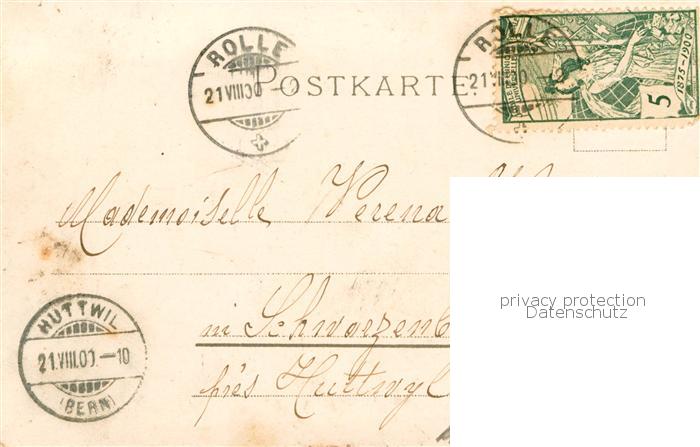 ROLLE
21.VIII.00.-
POSTKARTE.
ROLLE
21.VIII.00
1875-1900
5
Mademoiselle Verena
in Schwarzenb
près Huttwyl
HUTTWIL
21.VIII.00.-10
(BERN)
privacy protection
Datenschutz